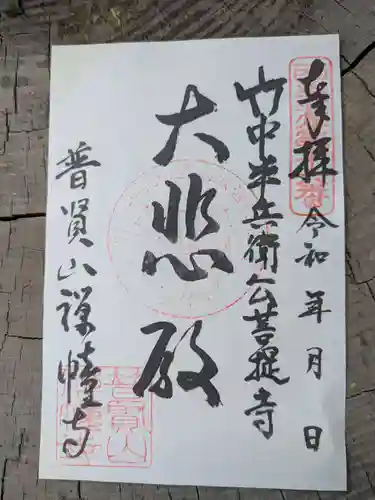 奉拝 令和 年 月 日
竹中半兵衛公菩提寺
大悲殿
普賢山禅幢寺